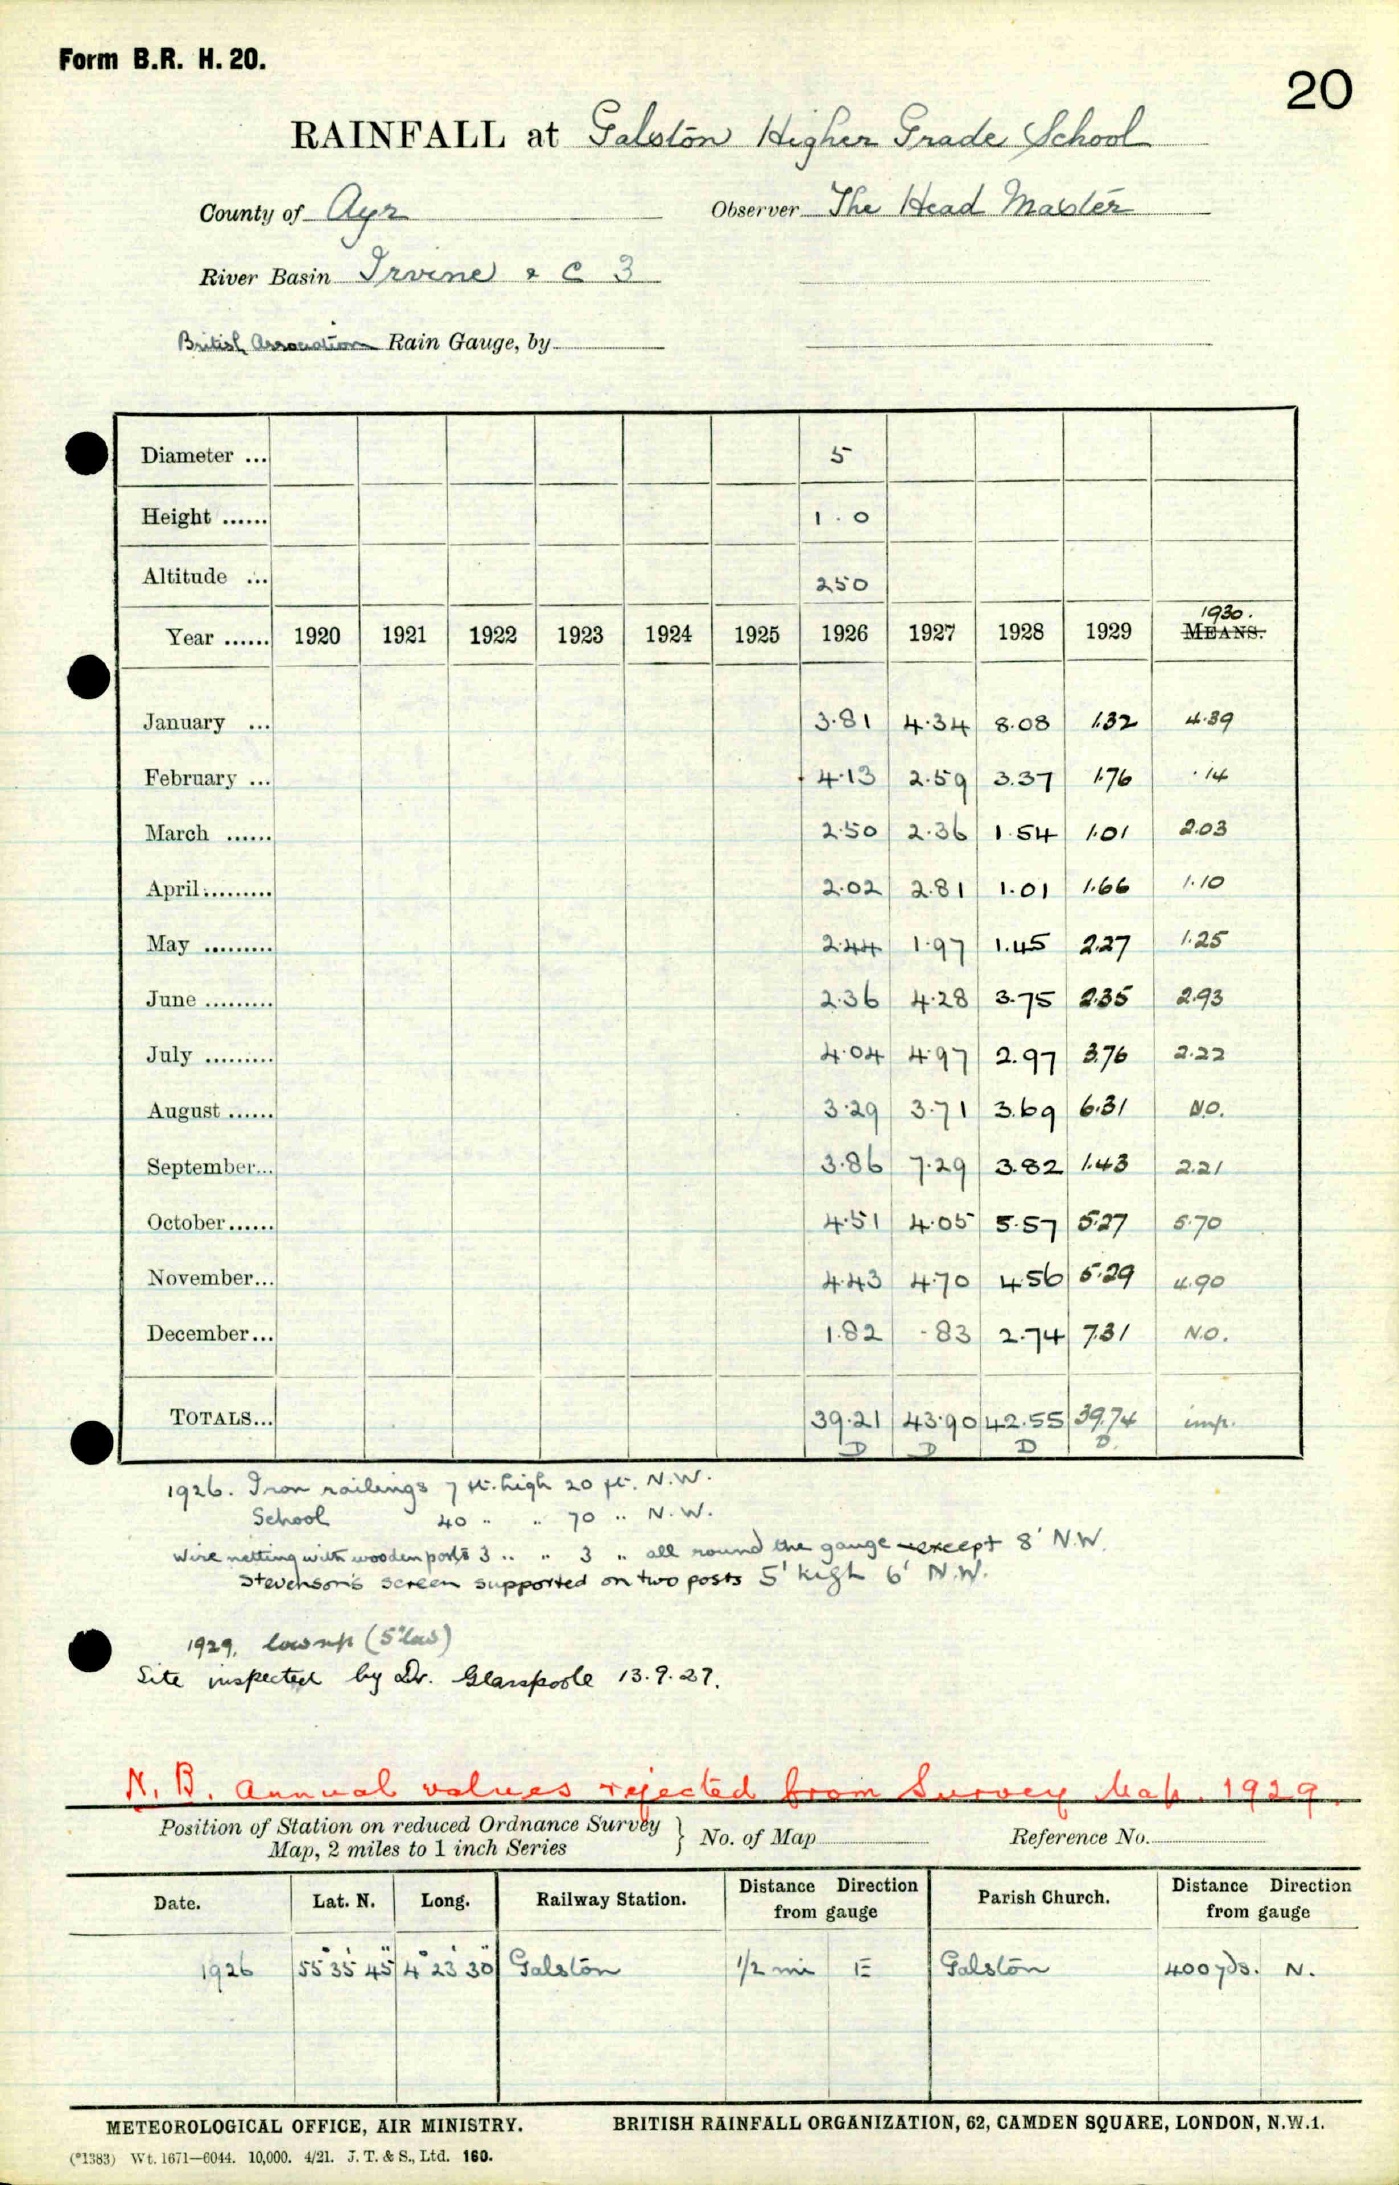 Form B.R. H. 20.
20
RAINFALL at Galston Higher Grade School
County of Ayr Observer The Head Master
River Basin Irvine & C 3
British Association Rain Gauge, by
Diameter ... 5
Height ...... 1.0
Altitude ... 250
Year ...... 1920 1921 1922 1923 1924 1925 1926 1927 1928 1929 1930. MEANS.
January ... 3.81 4.34 8.08 1.32 4.39
February ... 4.13 2.59 3.37 1.76 .14
March ...... 2.50 2.36 1.54 1.01 2.03
April ......... 2.02 2.81 1.01 1.66 1.10
May ......... 2.44 1.97 1.45 2.27 1.25
June ......... 2.36 4.28 3.75 2.35 2.93
July ......... 4.04 4.97 2.97 3.76 2.22
August ...... 3.29 3.71 3.69 6.31 N.O.
September... 3.86 7.29 3.82 1.43 2.21
October...... 4.51 4.05 5.57 5.27 5.70
November... 4.43 4.70 4.56 5.29 4.90
December... 1.82 .83 2.74 7.31 N.O.
TOTALS... 39.21 43.90 42.55 39.74 imp.
D D D D.
1926. Iron railings 7 ft. high 20 ft. N.W.
School 40 " " 70 " N.W.
Wire netting with wooden posts 3 " " 3 " all round the gauge except 8' N.W.
Stevenson's screen supported on two posts 5' high 6' N.W.
1929,
Site inspected by Dr. Glasspoole 13.9.27.
N.B. Annual values rejected from Survey Map. 1929.
Position of Station on reduced Ordnance Survey
Map, 2 miles to 1 inch Series } No. of Map Reference No.
Date. Lat. N. Long. Railway Station. Distance Direction from gauge Parish Church. Distance Direction from gauge
1926 55° 35' 45" 4° 23' 30" Galston 1/2 mi E Galston 400 yds. N.
METEOROLOGICAL OFFICE, AIR MINISTRY. BRITISH RAINFALL ORGANIZATION, 62, CAMDEN SQUARE, LONDON, N.W.1.
(*1383) Wt. 1671—6044. 10,000. 4/21. J. T. & S., Ltd. 160.